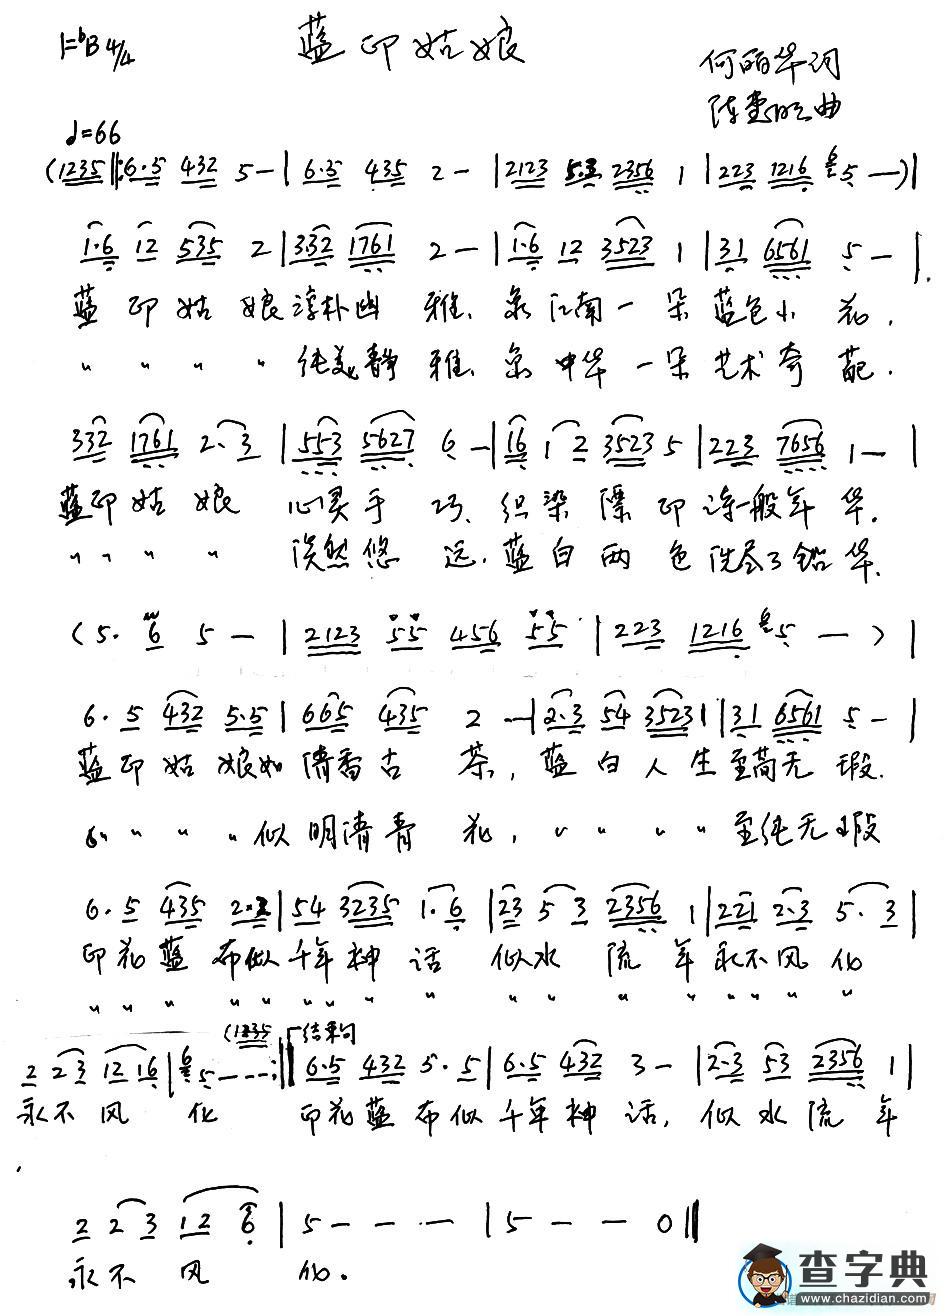 1=♭B 4/4
蓝印姑娘
何丽华词
曲
♩=66
(1235‖:6·5 432 5-|6·5 435 2-|2123 2356 1|223 1216 5—)|
1·6 12 535 2|332 1761 2-|1·6 12 3523 1|31 6561 5-|
蓝印姑娘淳朴幽雅,象江南一朵蓝色小花,
〃 〃 〃 〃 纯美静雅,象中华一朵艺术奇葩.
332 1761 2·3|553 5627 6-|16 1 2 3523 5|223 7656 1-|
蓝印姑娘 心灵手巧,织染漂印诗一般年华.
〃 〃 〃 〃 淡然悠远,蓝白两色洗尽了铅华.
(5· 6 5-|2123 55 456 55|223 1216 5-)|
6·5 432 5·5|665 435 2-|2·3 54 3523 1|31 6561 5-|
蓝印姑娘如清香古茶,蓝白人生至高无瑕.
〃 〃 〃 〃 似明清青花,〃 〃 〃 〃 至纯无瑕
6·5 435|54 3235 1·6|23 5 3 2356 1|221 2·3 5·3|
印花蓝布似千年神话 似水流年永不风化
〃 〃 〃 〃 〃 〃 〃 〃 〃 〃 〃 〃 〃 〃 〃 〃 〃
(1235 结束句
2 23 12 16|5---:‖6·5 432 5·5|6·5 432 3-|2·3 53 2356 1|
永不风化 印花蓝布似千年神话,似水流年
2 2 3 12 6|5---|5--0‖
永不风化.
查字典
www.chazidian.com